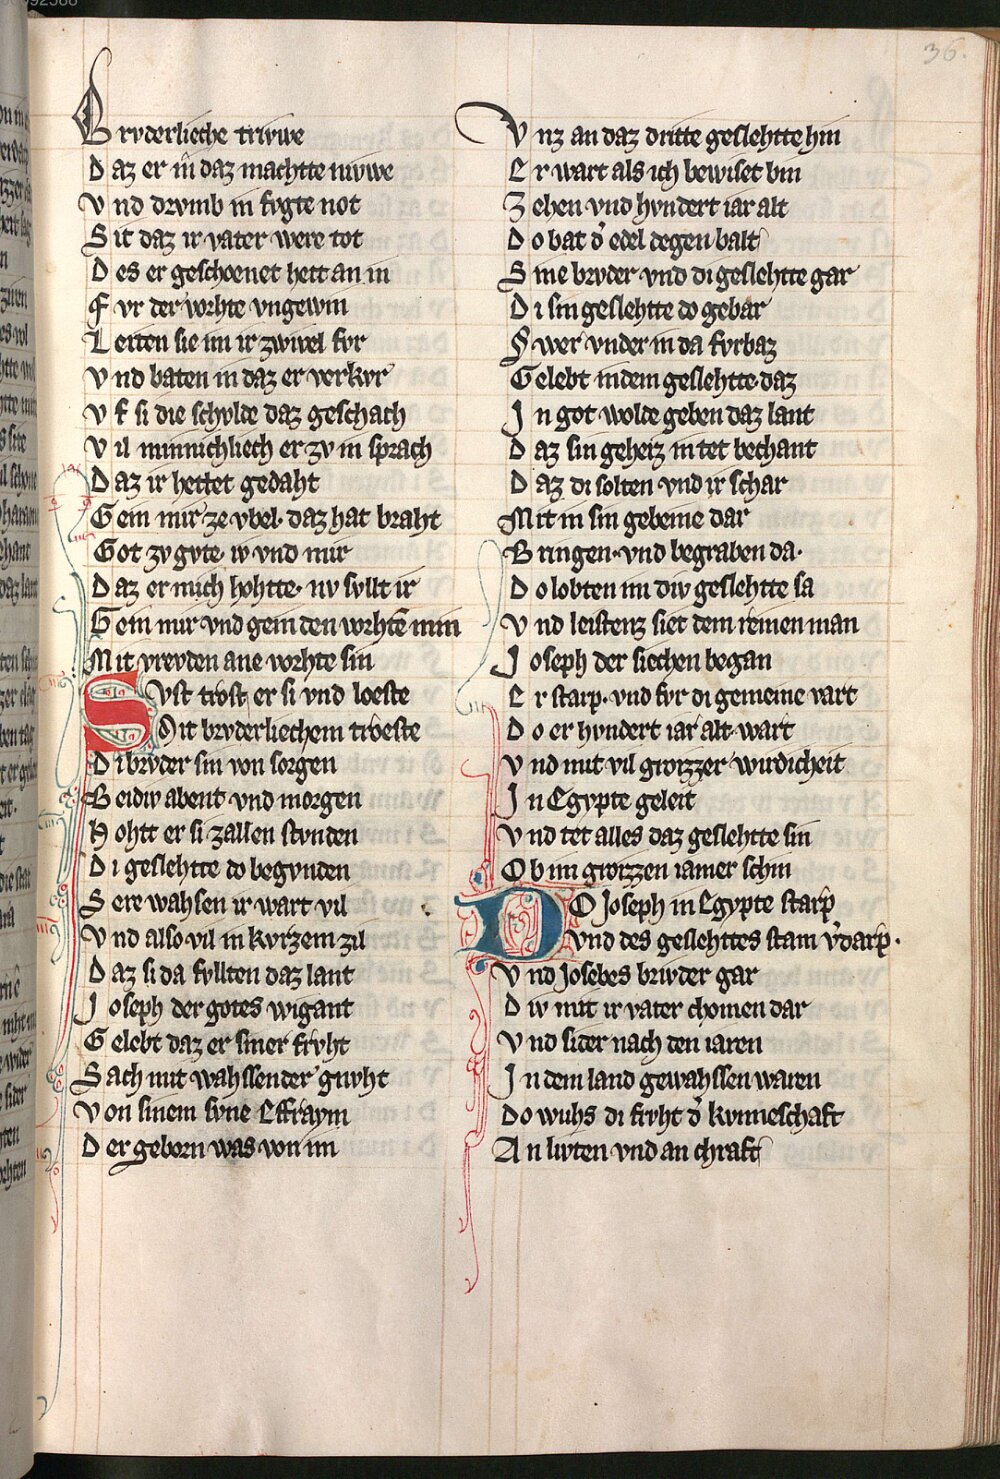 36.
Brvderlieche triwe
Daz er in daz machtte nivwe
Vnd drvmb in fvgte not
Sit daz ir vater were tot
Des er geschoenet hett an in
Fvr der vorhte vngewin
Leiten sie im ir zwivel fvr
Vnd baten in daz er verkvr
Vf si die schvlde daz geschach
Vil minnichliech er zv in sprach
Daz ir hettet gedaht
Gein mir ze vbel· daz hat braht
Got zv gvte· iv vnd mir
Daz er mich hohtte· nv svllt ir
Gein mir vnd gein den vorhtē min
Mit vrevden ane vorhte sin
Svst trost er si vnd loeste
Mit brvderliechem troeste
Di brvder sin von sorgen
Beidiv abent vnd morgen
Hohtt er si zallen stvnden
Di geslehtte do begvnden
Sere wahsen ir wart vil
Vnd also vil in kvrzem zil
Daz si da fvllten daz lant
Joseph der gotes wigant
Gelebt daz er siner frvht
Sach mit wahssender gnvht
Von sinem svne Effraym
Der geborn was von im
Vnz an daz dritte geslehtte hin
Er wart als ich bewiset bin
Zehen vnd hvndert iar alt
Do bat d̄ edel degen balt
Sine brvder vnd di geslehtte gar
Di sin geslehtte do gebar
Swer vnder in da fvrbaz
Gelebt in dem geslehtte· daz
In got wolde geben daz lant
Daz sin geheiz in tet bechant
Daz di solten vnd ir schar
Mit in sin gebeine dar
Bringen· vnd begraben da·
Do lobten im div geslehtte sa
Vnd leistenz siet dem reinen man
Joseph der siechen began
Er starp· vnd fvr di gemeine vart
Do er hvndert iar alt· wart
Vnd mit vil grozzer wirdicheit
In Egypte geleit
Vnd tet alles daz geslehtte sin
Ob im grozzen iamer schin
DO Joseph in Egypte starp
Vnd des geslehttes stam v̄darp·
Vnd Josebes brvder gar
Div mit ir vater chomen dar
Vnd sider nach den iaren
In dem land gewahssen waren
Do wuhs di frvht d̄ kvnneschaft
An livten vnd an chraft